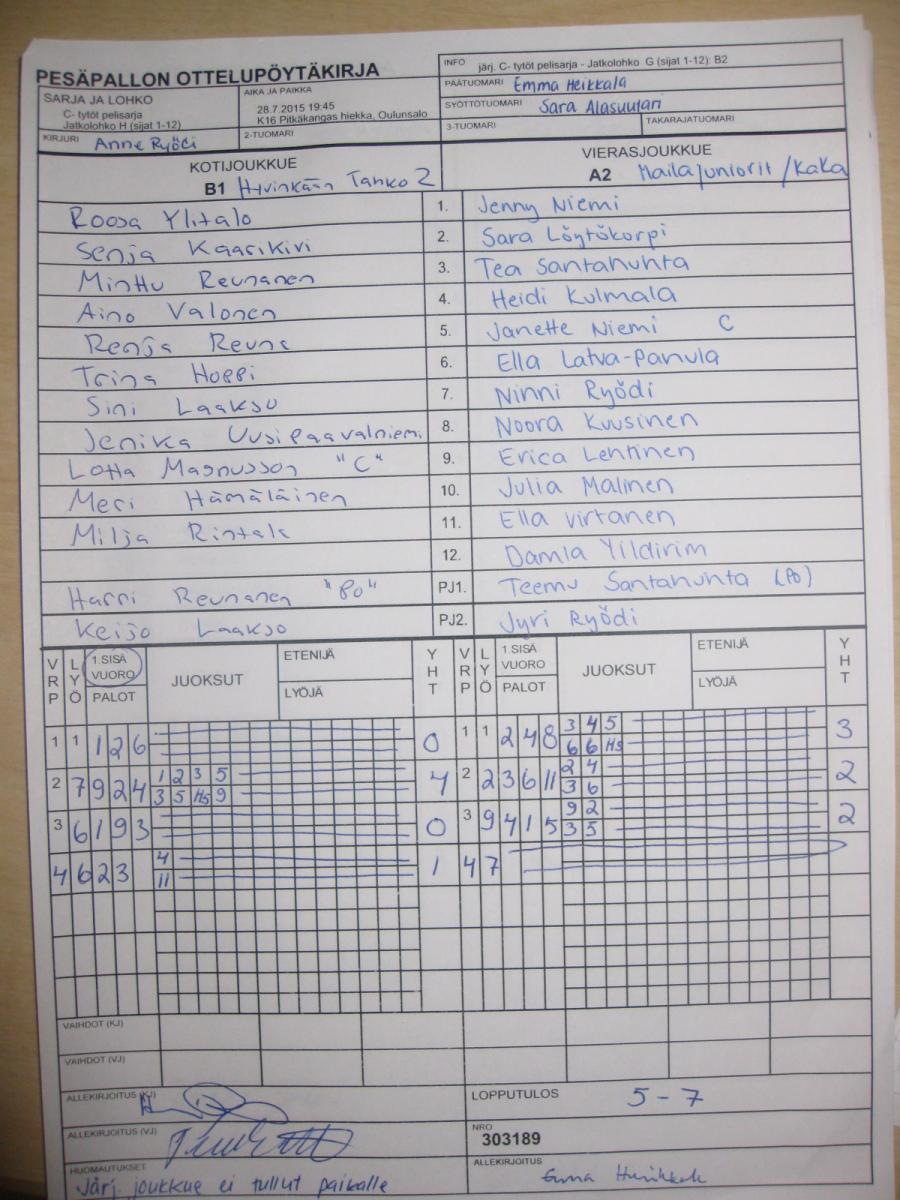 PESÄPALLON OTTELUPÖYTÄKIRJA
INFO järj. C- tytöt pelisarja - Jatkolohko G (sijat 1-12): B2
PÄÄTUOMARI Emma Heikkala
SARJA JA LOHKO
C- tytöt pelisarja
Jatkolohko H (sijat 1-12)
AIKA JA PAIKKA
28.7.2015 19:45
K16 Pitkäkangas hiekka, Oulunsalo
SYÖTTÖTUOMARI Sara Alasuutari
KIRJURI Anne Ryödi
2-TUOMARI
3-TUOMARI
TAKARAJATUOMARI
KOTIJOUKKUE
B1 Hyvinkään Tahko 2
VIERASJOUKKUE
A2 Mailajuniorit /KaKa
Roosa Ylitalo 1. Jenny Niemi
Senja Kaarikivi 2. Sara Löytökorpi
Minttu Reunanen 3. Tea Santahuhta
Aino Valonen 4. Heidi Kulmala
Renja 5. Janette Niemi C
6. Ella Latva-Panula
Sini Laakso 7. Ninni Ryödi
Jenika Uusipaavalniemi 8. Noora Kuusinen
Lotta Magnusson "C" 9. Erica Lehtinen
Meri Hämäläinen 10. Julia Malinen
Milja Rintala 11. Ella Virtanen
12. Damla Yildirim
Harri Reunanen "PO" PJ1. Teemu Santahuhta (PO)
Keijo Laakso PJ2. Jyri Ryödi
VRP LYÖ 1.SISÄ VUORO PALOT JUOKSUT ETENIJÄ LYÖJÄ YHT VRP LYÖ 1.SISÄ VUORO PALOT JUOKSUT ETENIJÄ LYÖJÄ YHT
1 1 1 2 6 0 1 1 2 4 8 3 4 5 3
6 6 Hs
2 7 9 2 4 1 2 3 5 4 2 2 3 6 11 2 4 2
3 5 Hs 9 3 6
3 6 1 9 3 0 3 9 4 1 5 9 2 2
3 5
4 6 2 3 4 1 4 7
11
VAIHDOT (KJ)
VAIHDOT (VJ)
ALLEKIRJOITUS (KJ)
LOPPUTULOS 5 - 7
ALLEKIRJOITUS (VJ)
NRO
303189
HUOMAUTUKSET
Järj. joukkue ei tullut paikalle
ALLEKIRJOITUS
Emma Heikkala